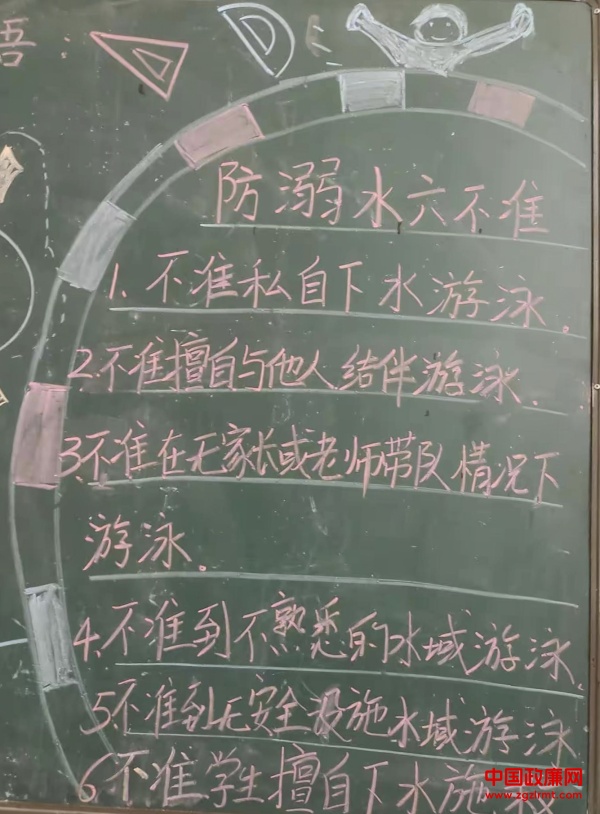 语:
防溺水六不准
1. 不准私自下水游泳.
2.不准擅自与他人结伴游泳.
3.不准在无家长或老师带队情况下
游泳.
4.不准到不熟悉的水域游泳.
5不准到无安全设施水域游泳
6不准学生擅自下水施
中国政廉网
www.zgzlrmt.com